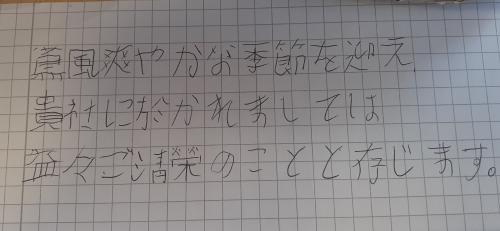 薫風爽やかな季節を迎え、
貴社に於かれましては
益々ご清栄のことと存じます。